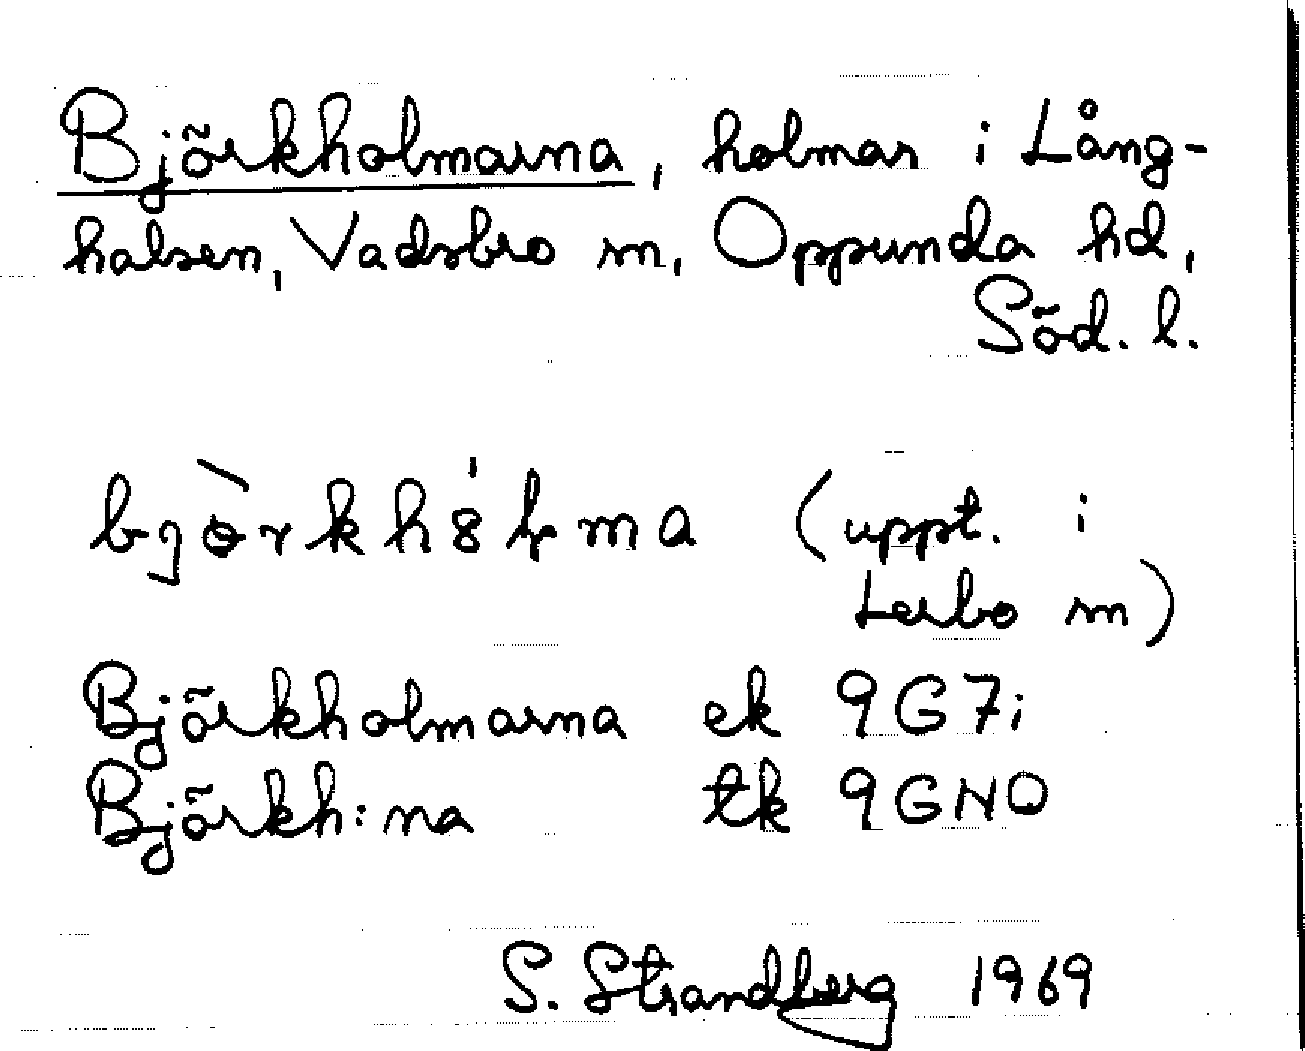 Björkholmarna, holmar i Lång-
halsen, Vadsbro sn, Oppunda hd,
Söd. l.
(uppt. i
Lerbo sn)
Björkholmarna ek 9G7i
Björkh:na tk 9GNO
S. Strandberg 1969